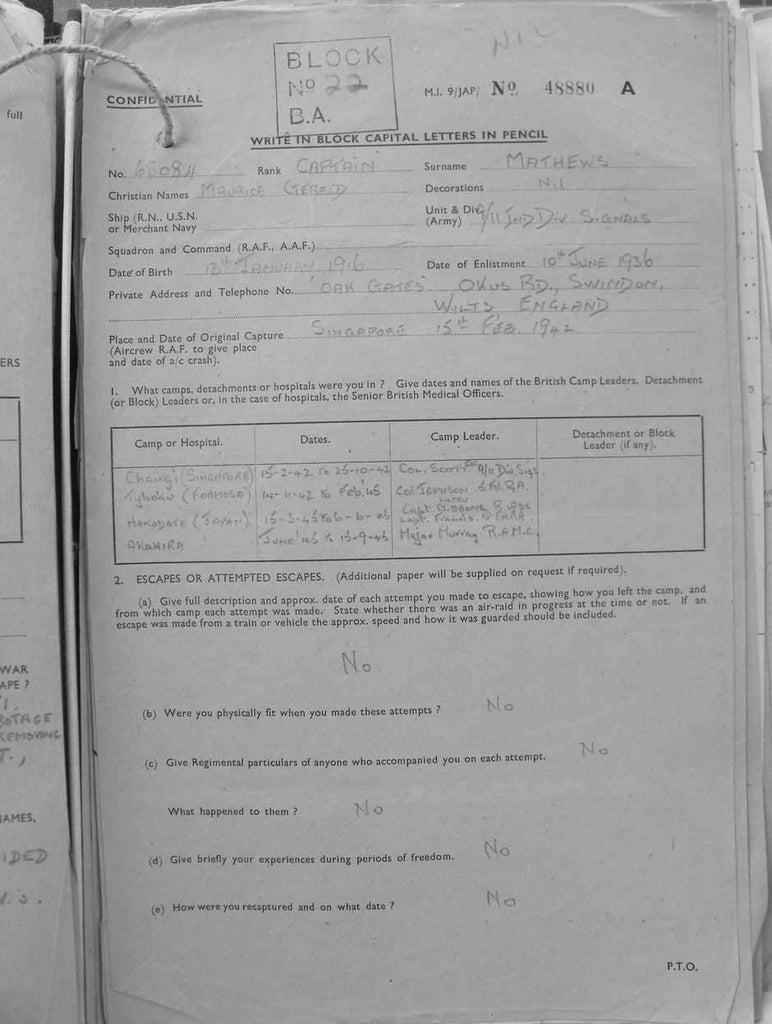 NIL
BLOCK
No 22
B.A.
CONFIDENTIAL
M.I. 9/JAP/ No 48880 A
WRITE IN BLOCK CAPITAL LETTERS IN PENCIL
No. Rank CAPTAIN Surname MATHEWS
Christian Names MAURICE GERALD Decorations NIL
Ship (R.N., U.S.N. or Merchant Navy
Unit & Div. (Army) 9/11 IND DIV SIGNALS
Squadron and Command (R.A.F., A.A.F.)
Date of Birth 13th JANUARY 1916 Date of Enlistment 10th JUNE 1936
Private Address and Telephone No. "OAK GATES" OKUS RD., SWINDON,
WILTS ENGLAND
Place and Date of Original Capture SINGAPORE 15th FEB. 1942
(Aircrew R.A.F. to give place
and date of a/c crash).
1. What camps, detachments or hospitals were you in ? Give dates and names of the British Camp Leaders, Detachment
(or Block) Leaders or, in the case of hospitals, the Senior British Medical Officers.
Camp or Hospital. Dates. Camp Leader. Detachment or Block Leader (if any).
Changi (SINGAPORE) 15-2-42 to 25-10-42 9/11 Div. Sigs
(FORMOSA) 14-11-42 to Feb '45 Col
HAKODATE (JAPAN) Capt. GIBBONS, Capt. Francis
AKAHIRA June '45 to 15-9-45 Major Murray R.A.M.C.
2. ESCAPES OR ATTEMPTED ESCAPES. (Additional paper will be supplied on request if required).
(a) Give full description and approx. date of each attempt you made to escape, showing how you left the camp, and
from which camp each attempt was made. State whether there was an air-raid in progress at the time or not. If an
escape was made from a train or vehicle the approx. speed and how it was guarded should be included.
No.
(b) Were you physically fit when you made these attempts ? No
(c) Give Regimental particulars of anyone who accompanied you on each attempt. No
What happened to them ? No
(d) Give briefly your experiences during periods of freedom. No
(e) How were you recaptured and on what date ? No
P.T.O.
full
ERS
WAR
APE ?
BOTAGE
REMOVING
T.,
AMES.
IDED